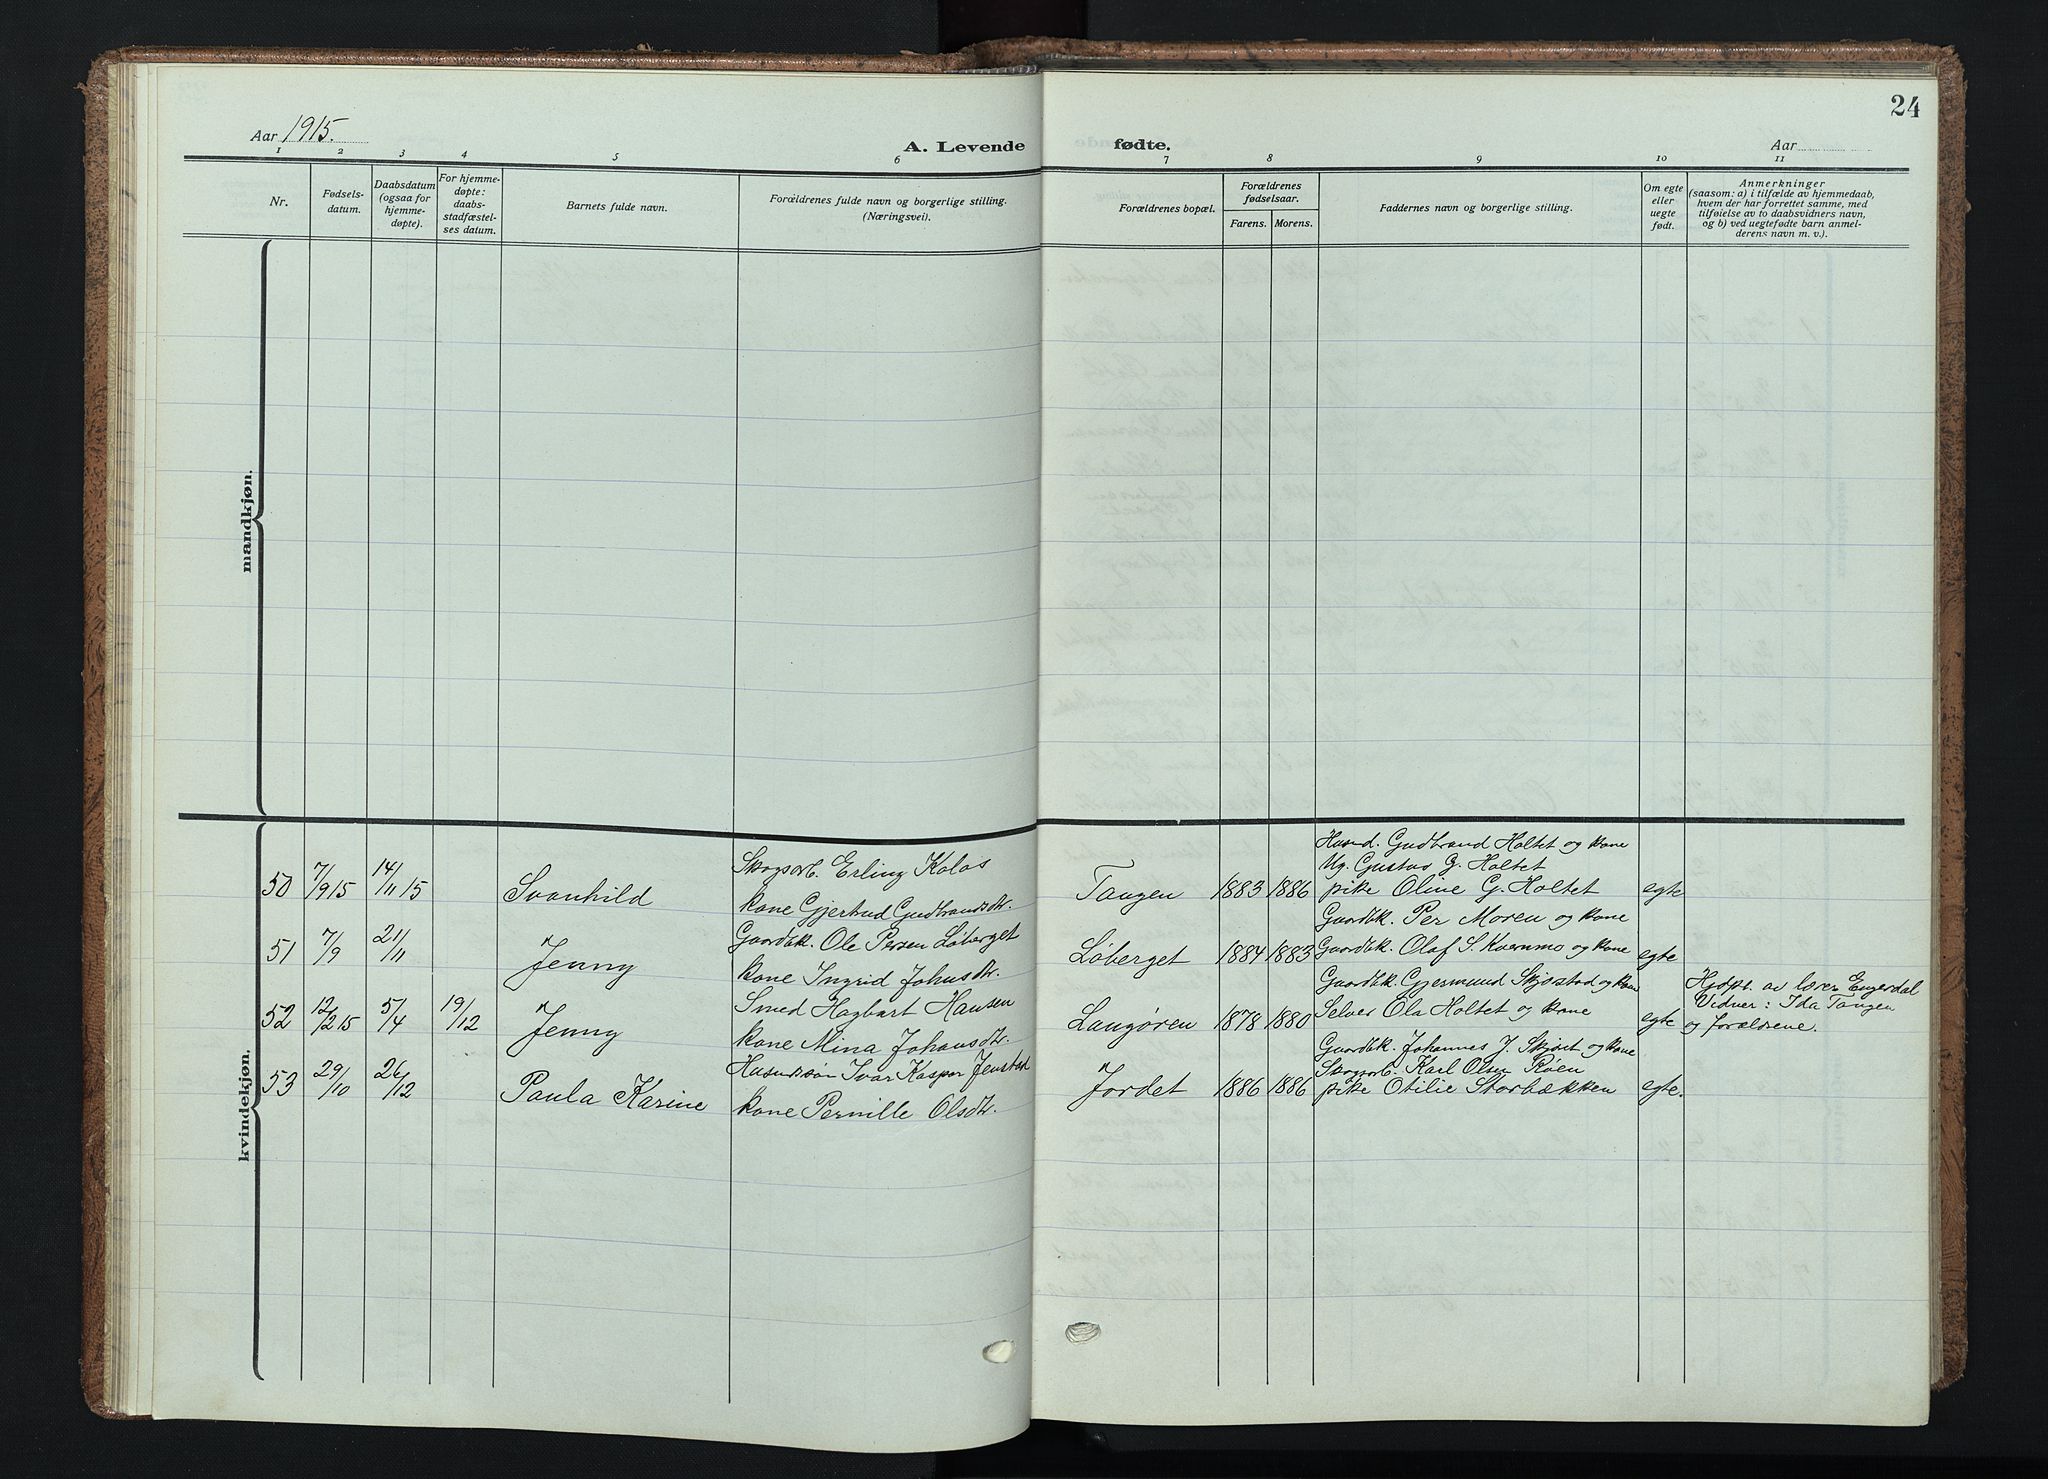 24
Aar 1915.
A. Levende fødte.
Aar
1 2 3 4 5 6 7 8 9 10 11
Nr.
Fødsels-
datum.
Daabsdatum
(ogsaa for
hjemme-
døpte).
For hjemme-
døpte:
daabs-
stadfæstel-
ses datum.
Barnets fulde navn.
Forældrenes fulde navn og borgerlige stilling.
(Næringsvei).
Forældrenes bopæl.
Forældrenes
fødselsaar.
Farens. Morens.
Faddernes navn og borgerlige stilling.
Om egte
eller
uegte
født.
Anmerkninger
(saasom: a) i tilfælde av hjemmedaab,
hvem der har forrettet samme, med
tilføielse av to daabsvidners navn,
og b) ved uegtefødte barn anmel-
derens navn m. v.).
mandkjøn.
kvindekjøn.
50 7/9 15 14/11 15 Svanhild
Skogsarb. Erling Kolos
kone Gjertrud Gudbrandsdtr.
Tangen 1883 1886
Husmd. Gudbrand Holtet og kone
Ug. Gustav G. Holtet
pike Oline G. Holtet
egte
51 7/9 21/11 Jenny
Gaardbk. Ole Persen Løberget
kone Ingrid Johnsdtr.
Løberget 1884 1883
Gaardbk. Per Moren og kone
Gaardbk. Olaf S. Kvernmo og kone
egte
52 12/2 15 5/4 19/12 Jenny
Smed Hagbart Hansen
kone Mina Johansdtr.
Langøren 1878 1880
Gaardbk. Gjermund Skjøstad og kone
Selver Ola Holtet og kone
egte
Hjdpt. av lærer Engerdal
Vidner: Ida Tangen
og forældrene.
53 29/10 26/12 Paula Karine
Husmdssøn Ivar Kasper Jenstad
kone Pernille Olsdtr.
Jordet 1886 1886
Gaardbk. Johannes J. Skjøret og kone
Skogsarb. Karl Olsen Røen
pike Otilie Storbækken
egte.